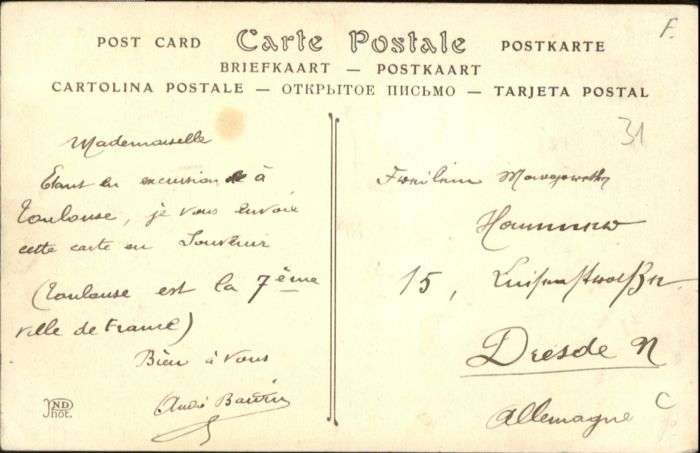 POST CARD Carte Postale POSTKARTE
BRIEFKAART — POSTKAART
CARTOLINA POSTALE — ОТКРЫТОЕ ПИСЬМО — TARJETA POSTAL
F.
31
Mademoiselle
Etant en excursion à
Toulouse, je vous envoie
cette carte en Souvenir
(Toulouse est la 7ème
ville de France)
Bien à vous
André
ND
Phot.
15,
Dresde N
Allemagne
C